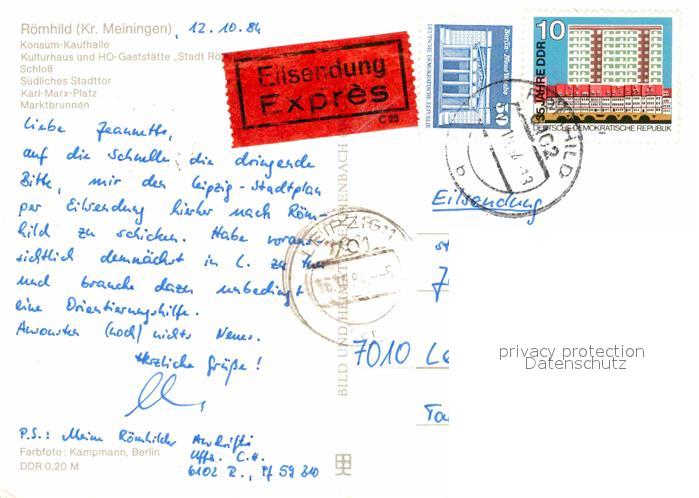 Römhild (Kr. Meiningen), 12.10.84
Konsum-Kaufhalle
Kulturhaus und HO-Gaststätte „Stadt
Schloß
Südliches Stadttor
Karl-Marx-Platz
Marktbrunnen
Eilsendung
Exprès
C 28
Berlin - Neue Wache
DEUTSCHE DEMOKRATISCHE REPUBLIK
50
10
35 JAHRE DDR
DEUTSCHE DEMOKRATISCHE REPUBLIK
Liebe Jeannette,
auf die Schnelle die dringende
Bitte, mir den Leipzig-Stadtplan
per Eilsendung hierher nach Röm-
hild zu schicken. Habe voraus-
sichtlich demnächst in L. zu tun
und brauche dazu unbedingt
eine Orientierungshilfe.
Ansonsten (noch) nichts Neues.
Herzliche Grüße!
P.S.: Meine Römhilder Anschrift:
Uffz. C.H.
6102 R., Pf 59 310
Farbfoto: Kampmann, Berlin
DDR 0,20 M
BILD UND HEIMAT REICHENBACH
LEIPZIG 11
701
Eilsendung
7010 Le
privacy protection
Datenschutz